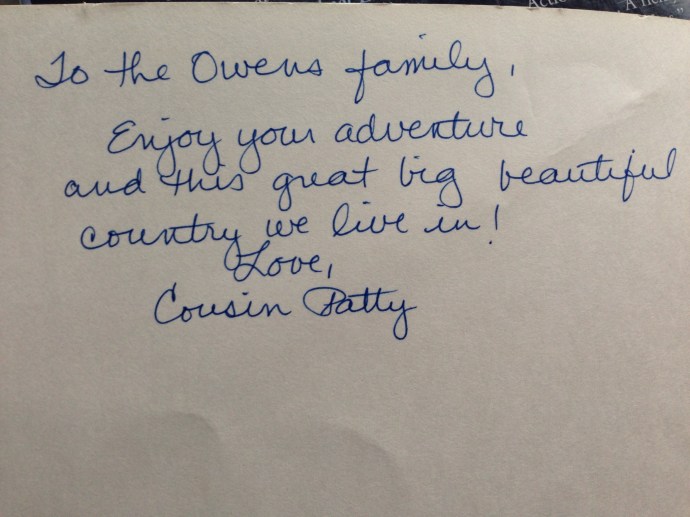 To the Owens family,
Enjoy your adventure
and this great big beautiful
country we live in!
Love,
Cousin Patty